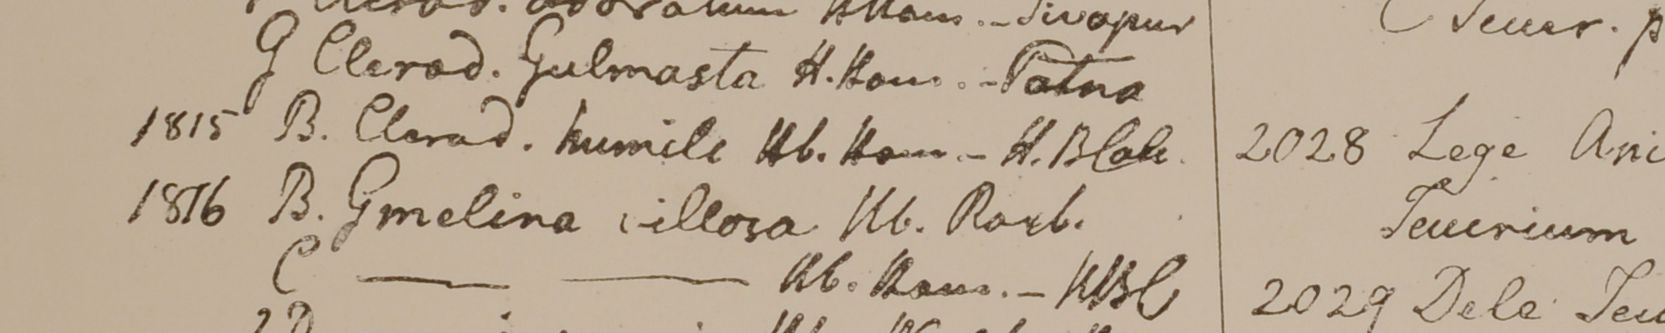 Clerod. odoratum H. Ham. - Sivapur
G Clerod. Gulmasta H. Ham. - Patna
1815 B. Clerod. humile Hb. Ham. - H. B. Calc.
1816 B. Gmelina villosa Hb. Roxb.
C — — Hb. Ham. - HBC
Teucr. p
2028 Lege Ani
Teucrium
2029 Dele Teu